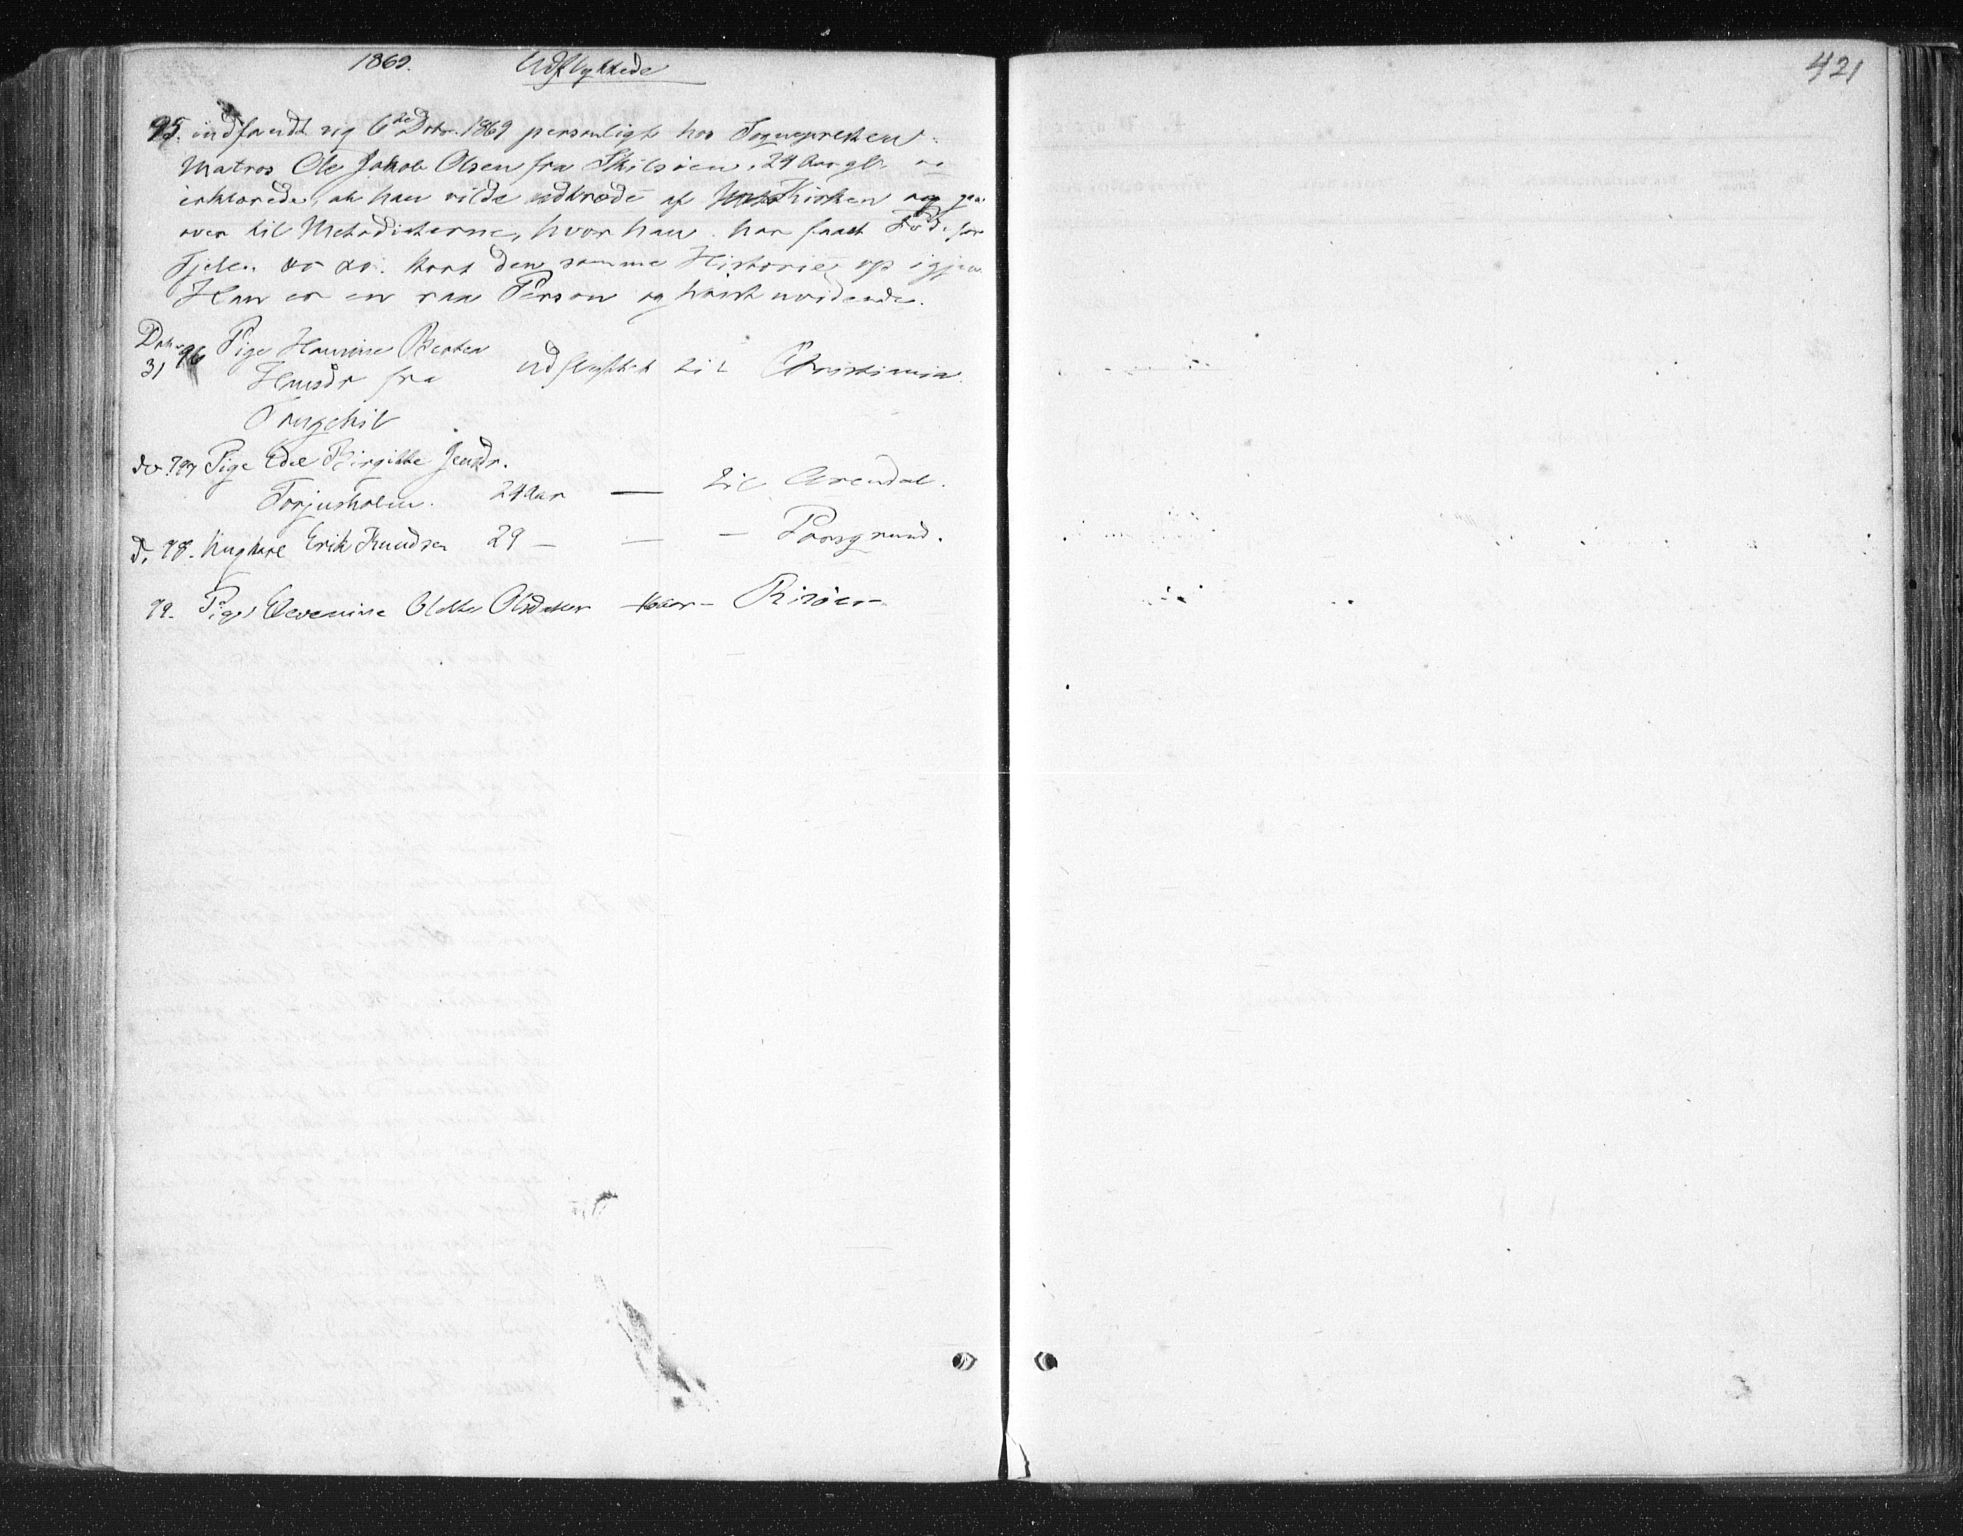 1869. Udflyttede
421
95. indfandt sig 6te Dcbr. 1869 personligt hos Sognepresten
Matros Ole Jakob Olsen fra Skilsöen, 24 Aar gl. og
erklærede, at han vilde udtræde af Kirken og gaa
over til Metodisterne, hvor han har faaet Föde for
Sjelen &c &c. kort den samme Historie op igjen.
Han er en raa Person og höist uvidende.
Dcbr 31 96 Pige Bertea udflyttet til Christiania.
fra
do 97 Pige Edel Birgitte Jensdr.
Torjusholm. 24 Aar — til Arendal.
d. 98. Ungkarl Erik Knudsen 29 — — — Porsgrund.
99. Pige Olsdatter — Risöer